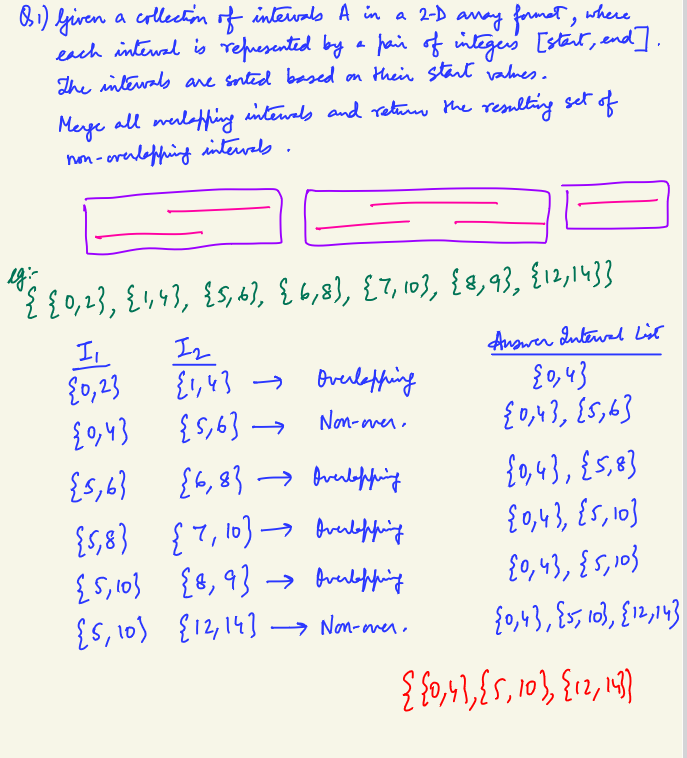 Q.1) Given a collection of intervals A in a 2-D array format, where
each interval is represented by a pair of integers [start, end].
The intervals are sorted based on their start values.
Merge all overlapping intervals and return the resulting set of
non-overlapping intervals.
eg:-
{ {0,2}, {1,4}, {5,6}, {6,8}, {7,10}, {8,9}, {12,14}}
I1 I2 Answer Interval List
{0,2} {1,4} → Overlapping {0,4}
{0,4} {5,6} → Non-over. {0,4}, {5,6}
{5,6} {6,8} → Overlapping {0,4}, {5,8}
{5,8} {7,10} → Overlapping {0,4}, {5,10}
{5,10} {8,9} → Overlapping {0,4}, {5,10}
{5,10} {12,14} → Non-over. {0,4}, {5,10}, {12,14}
{{0,4},{5,10},{12,14}}